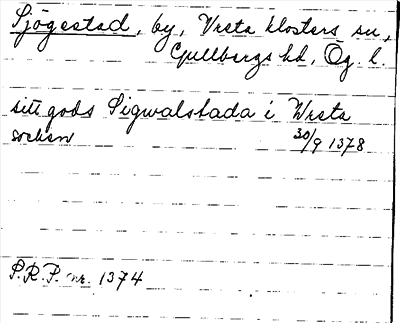 Sjögestad, by, Vreta klosters sn,
Gullbergs hd, Ög. l.
sitt gods Sigwalstada i Wreta
socken 30/9 1378
S.R.P. nr. 1374